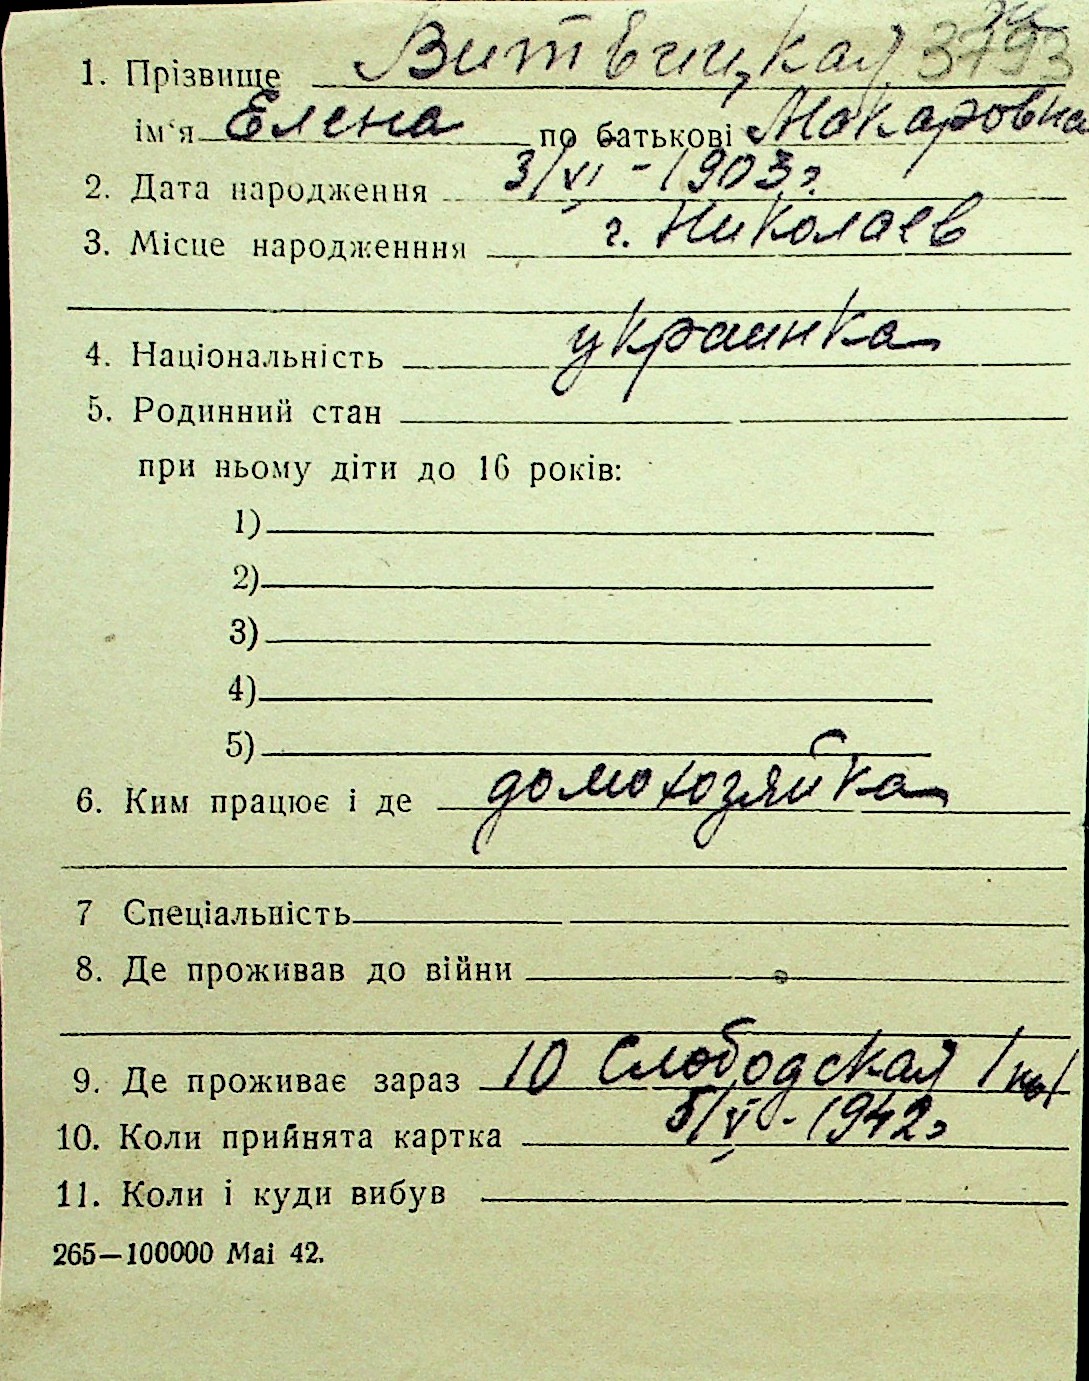 1. Прізвище Витвицкая 3793
ім'я Елена по батькові Макаровна
2. Дата народження 3/VI - 1903 г.
3. Місце народженння г. Николаев
4. Національність украинка
5. Родинний стан
при ньому діти до 16 років:
1)
2)
3)
4)
5)
6. Ким працює і де домохозяйка
7 Спеціальність
8. Де проживав до війни
9. Де проживає зараз 10 Слободская
10. Коли прийнята картка 5/V - 1942 г
11. Коли і куди вибув
265—100000 Mai 42.